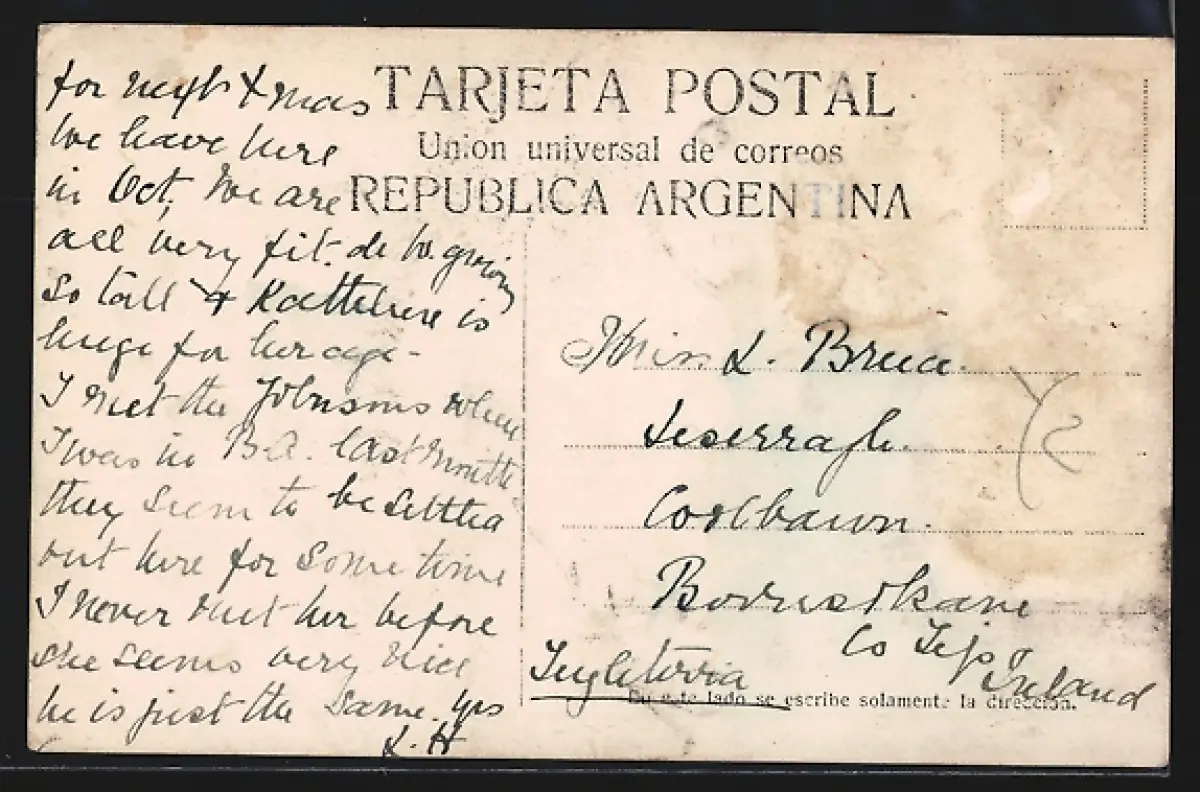 TARJETA POSTAL
Union universal de correos
REPUBLICA ARGENTINA
for next Xmas
We leave here
in Oct, We are
all very fit. de W. growing
so tall & Kathleen is
huge for her age -
I met the Johnsons when
I was in B.A. last month
they seem to be settled
out here for some time
I never met her before
she seems very nice
he is just the same. Yrs
L. H
Miss L. Bruce.
Coolbawn.
Borrisokane
Co Tipp
Ireland
Inglaterra
En este lado se escribe solamente la dirección.